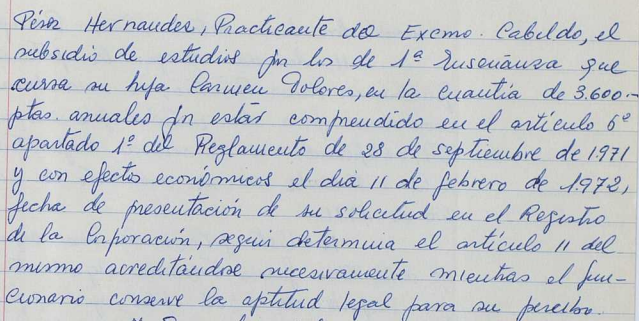 Pérez Hernández, Practicante del Excmo. Cabildo, el
subsidio de estudios pr los de 1ª Enseñanza que
cursa su hija Carmen Dolores, en la cuantía de 3.600.-
ptas. anuales pr estar comprendido en el artículo 6º
apartado 1º del Reglamento de 28 de septiembre de 1971
y con efectos económicos el día 11 de febrero de 1.972,
fecha de presentación de su solicitud en el Registro
de la Corporación, segun determina el artículo 11 del
mismo acreditándose sucesivamente mientras el fun-
cionario conserve la aptitud legal para su